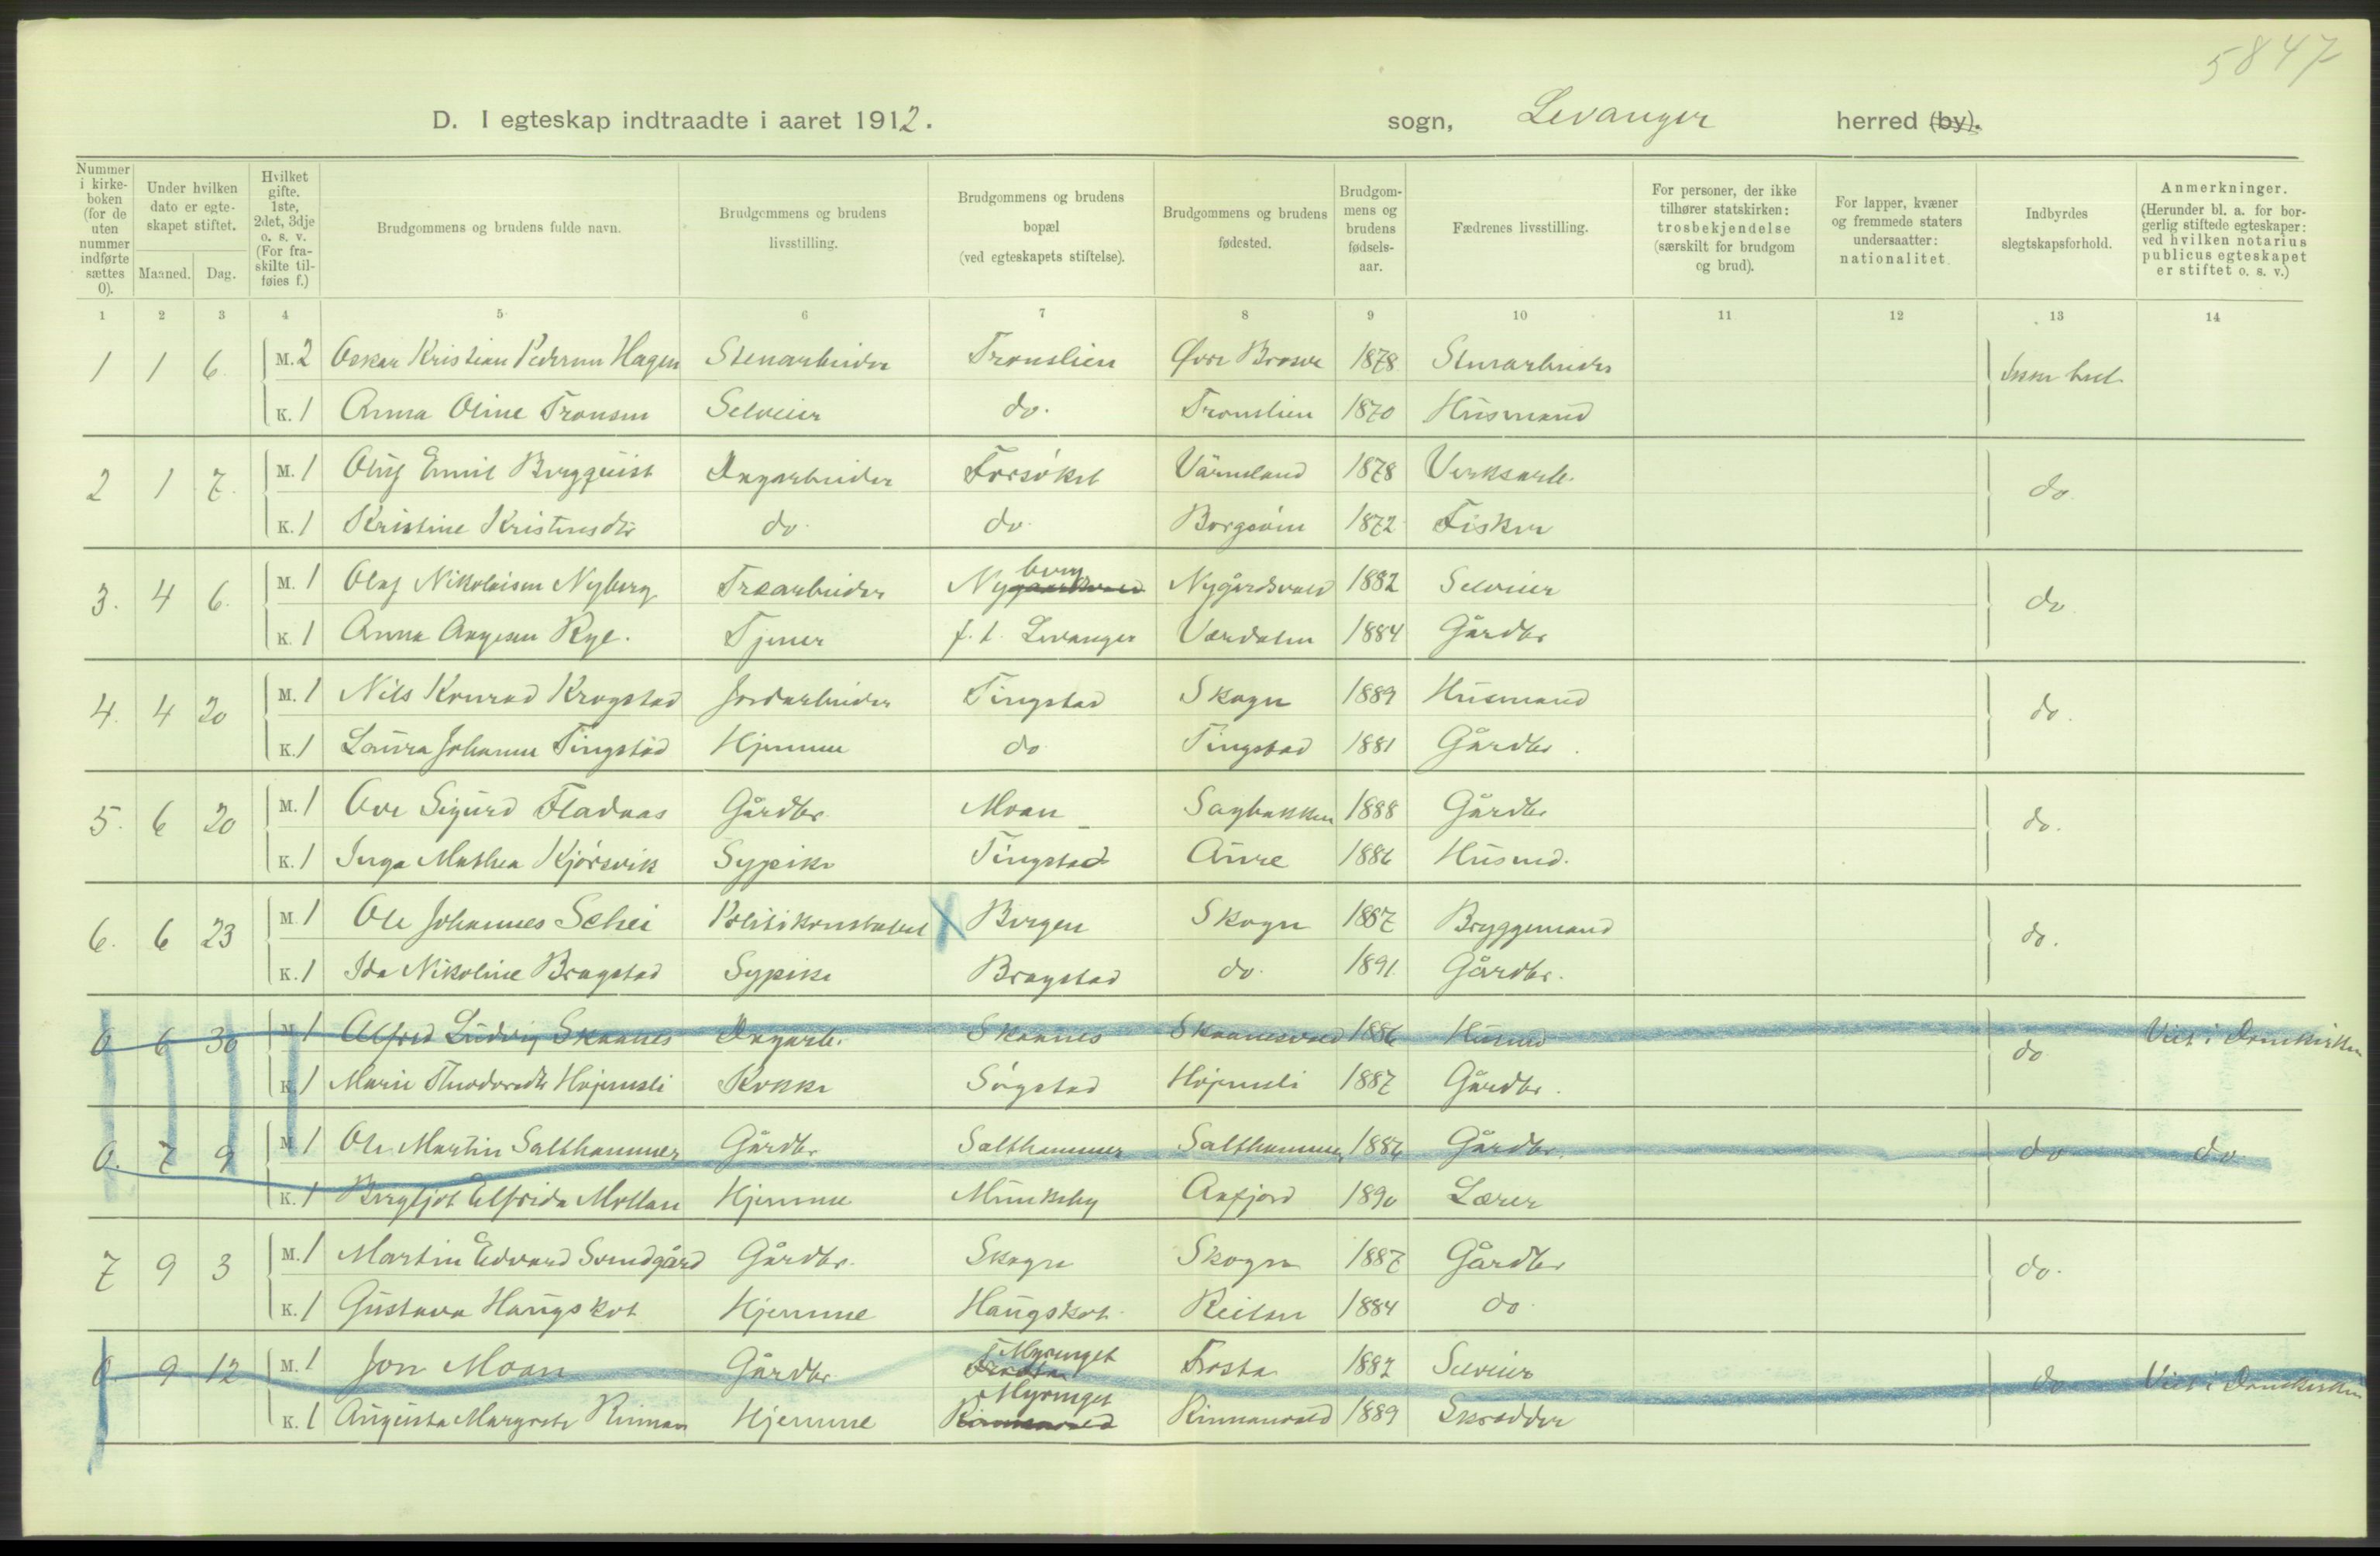 5847
D. I egteskap indtraadte i aaret 1912. sogn, Levanger herred (by).
Nummer i kirke-boken (for de uten nummer indførte sættes 0). Under hvilken dato er egte-skapet stiftet. Maaned. Dag. Hvilket gifte. 1ste, 2det, 3dje o. s. v. (For fra-skilte til-føies f.) Brudgommens og brudens fulde navn. Brudgommens og brudens livsstilling. Brudgommens og brudens bopæl (ved egteskapets stiftelse). Brudgommens og brudens fødested. Brudgom-mens og brudens fødsels-aar. Fædrenes livsstilling. For personer, der ikke tilhører statskirken: trosbekjendelse (særskilt for brudgom og brud). For lapper, kvæner og fremmede staters undersaatter: nationalitet. Indbyrdes slegtskapsforhold. Anmerkninger. (Herunder bl. a. for bor-gerlig stiftede egteskaper: ved hvilken notarius publicus egteskapet er stiftet o. s. v.)
1 2 3 4 5 6 7 8 9 10 11 12 13 14
1 1 6. M. 2 Oskar Kristian Pedersen Hagen Stenarbeider Tronslien Øvre 1878 Stenarbeider
K. 1 Anna Oline Tronsen Selveier do. Tronslien 1870 Husmand
2 1 7. M. 1 Oluf Emil Bergquist Dagarbeider Forsøket Värmland 1878 Verksarb. do.
K. 1 Kristine Kristensdtr do. do. 1872 Fisker
3. 4 6. M. 1 Olaf Nikolaisen Nyberg Træarbeider Nyberg Nygårdsvald 1882 Selveier do.
K. 1 Anna Aagesen Rye. Tjener f. t. Levanger Værdalen 1884 Gårdbr
4. 4 20 M. 1 Nils Konrad Krogstad Jordarbeider Tingstad Skogn 1889 Husmand do.
K. 1 Laura Johanne Tingstad Hjemme do Tingstad 1881 Gårdbr.
5. 6 20 M. 1 Ove Sigurd Fladaas Gårdbr. Moan Sagbakken 1888 Gårdbr do.
K. 1 Inga Mathea Kjørsvik Sypike Tingstad Aure 1886 Husmd.
6. 6 23 M. 1 Ole Johannes Schei Politikonstabel X Bergen Skogn 1887 Bryggemand do.
K. 1 Ida Nikoline Bragstad Sypike Bragstad do. 1891 Gårdbr.
0 6 30 M. 1 Alfred Ludvig Skaanes Dagarb. Skaanes Skaanesvald 1886 Husmd do Viet i Domkirken
K. 1 Marie Theodorsdtr Hojemsli Kokke Søgstad Hojemsli 1887 Gårdbr.
0. 7 9 M. 1 Ole Martin Salthammer Gårdbr. Salthammer Salthammer 1886 Gårdbr. do do.
K. 1 Bergljot Elfrida Mollan Hjemme Munkeby Aafjord 1890 Lærer
7 9 3 M. 1 Martin Edvard Svendgård Gårdbr. Skogn Skogn 1887 Gårdbr do.
K. 1 Gustava Haugskot Hjemme Haugskot Reitan 1884 do.
0. 9 12 M. 1 Jon Moan Gårdbr Frosta Myrunget Frosta 1882 Selveier do Viet i Domkirken
K. 1 Augusta Margrete Rinnan Hjemme Rinnanvald Myrunget Rinnanvald 1889 Skrædder